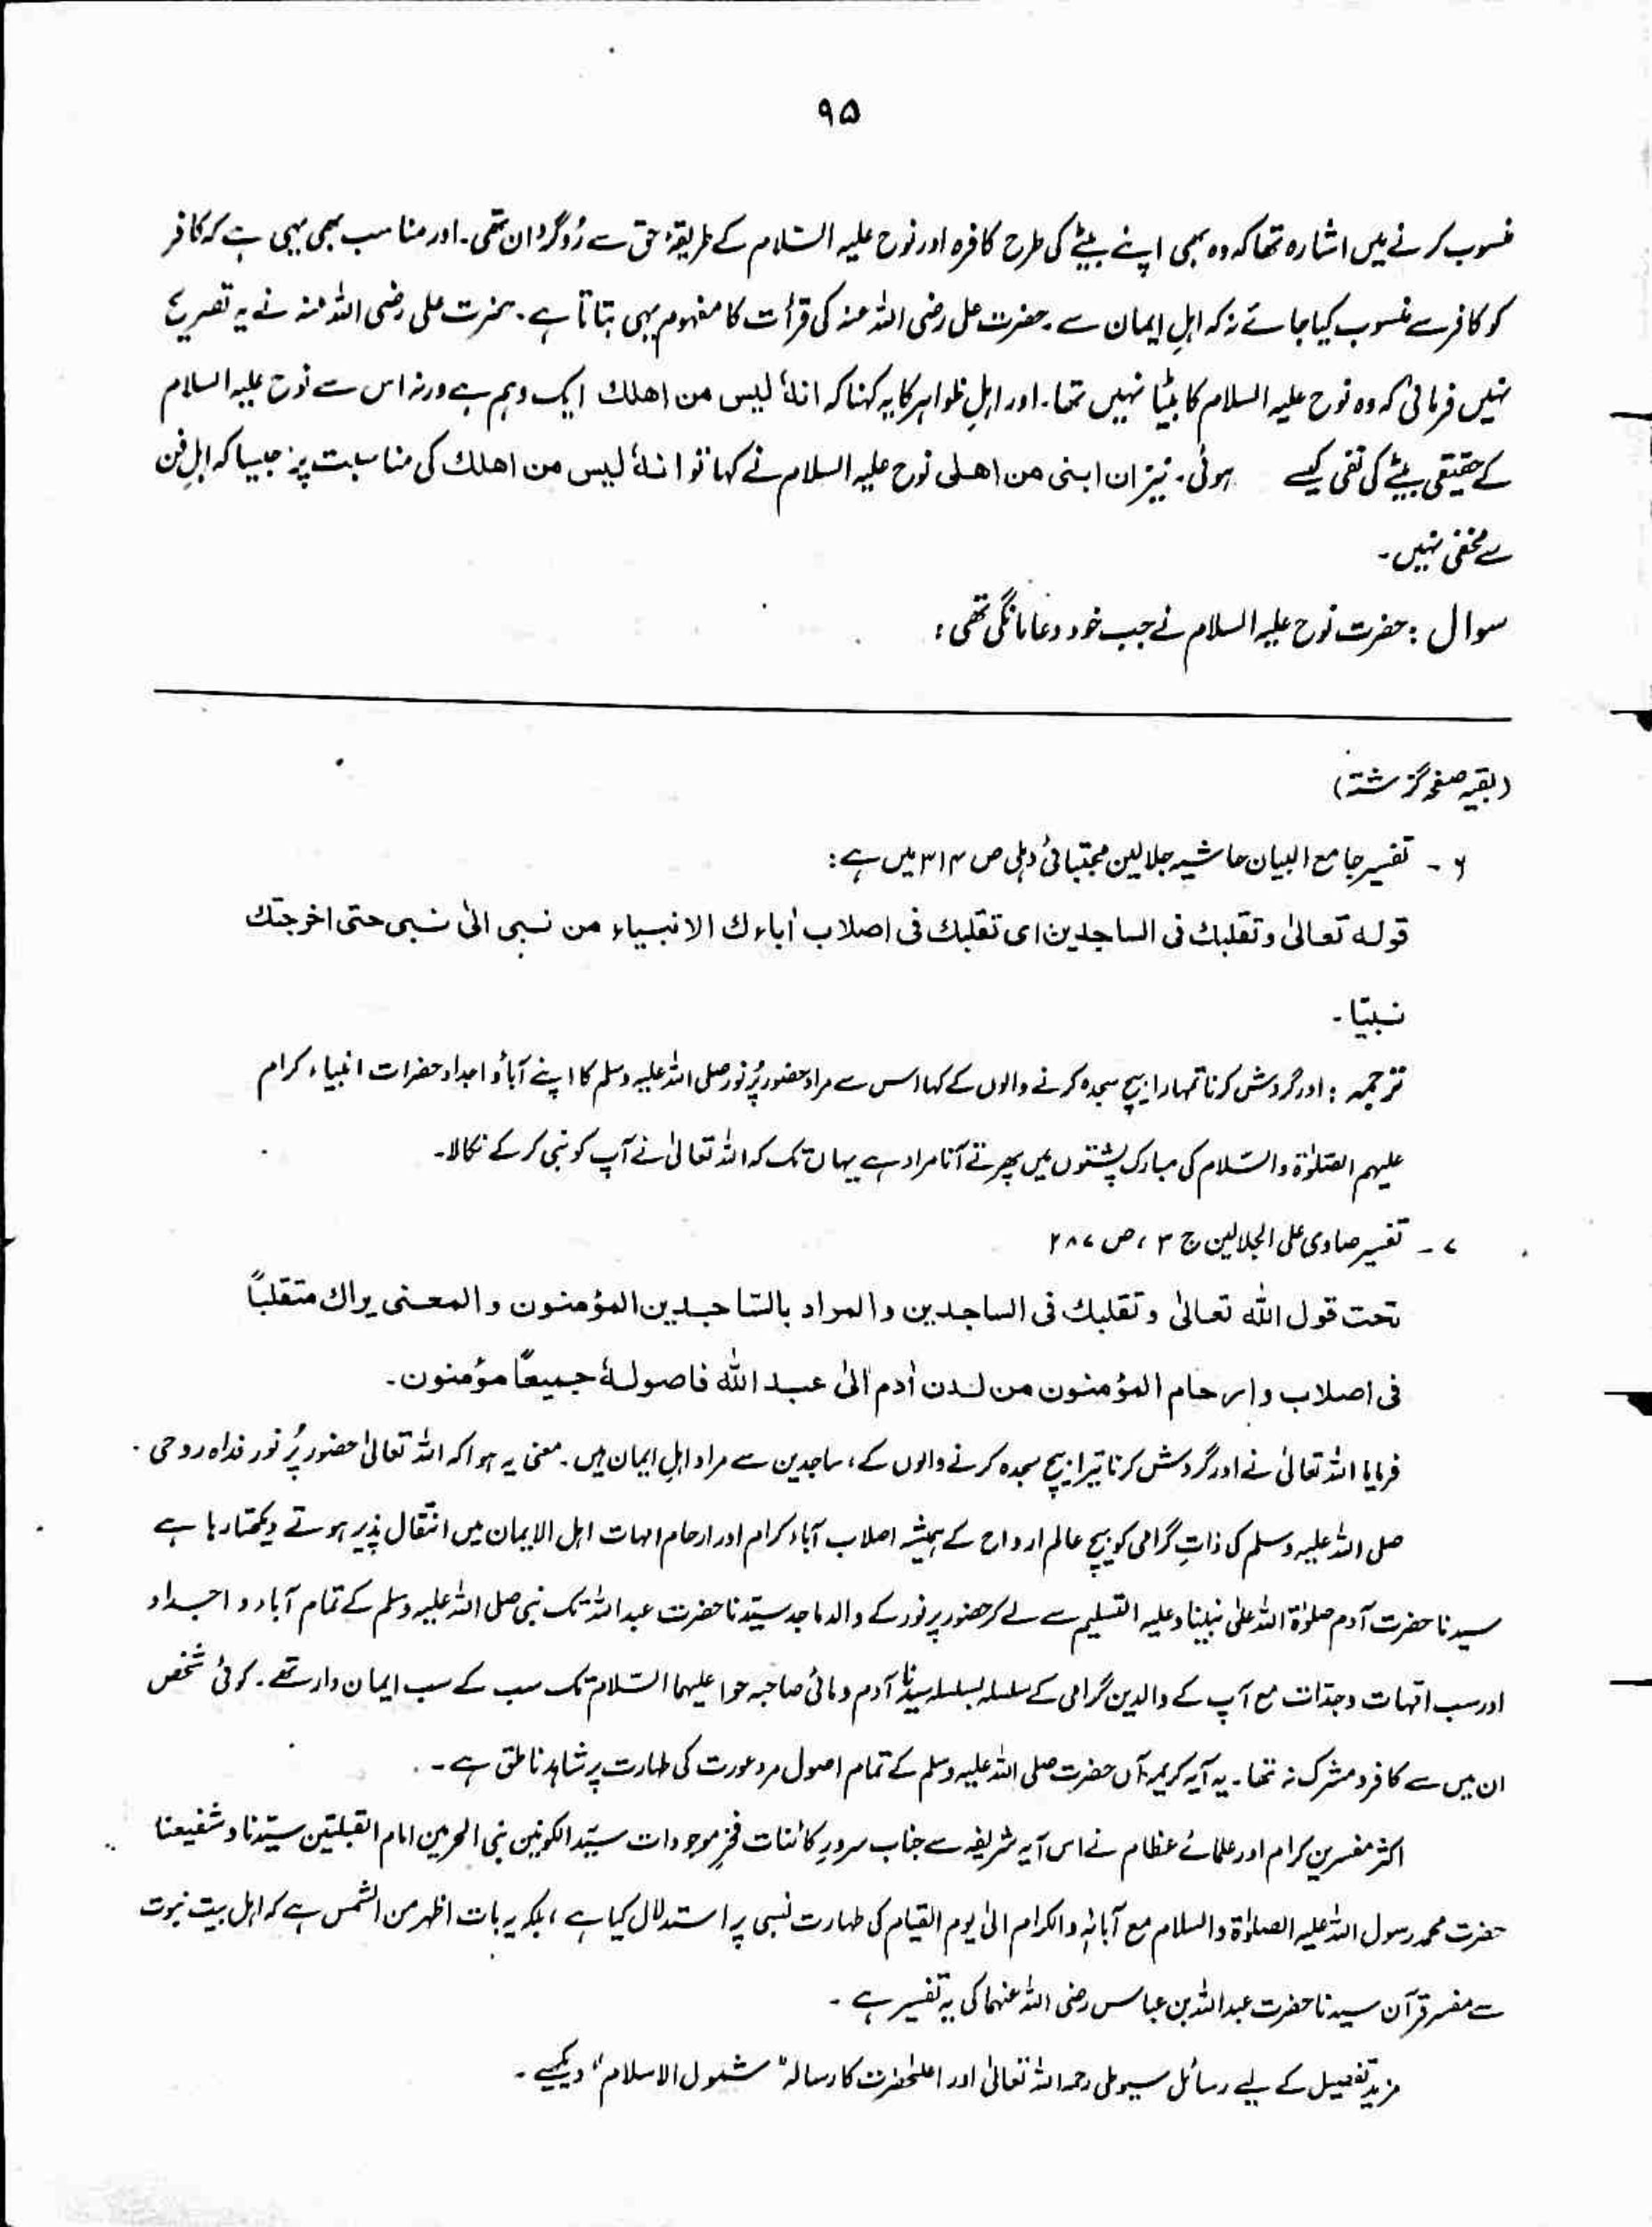 ۹۵
منسوب کرنے میں اشارہ تھا کہ وہ بھی اپنے بیٹے کی طرح کافرہ اور نوح علیہ السّلام کے طریقۂ حق سے رُوگرد ان تھی۔ اور مناسب بھی یہی ہے کہ کافر
کو کافر سے منسوب کیا جائے نہ کہ اہلِ ایمان سے۔ حضرت علی رضی اللہ عنہ کی قرأت کا مفہوم یہی بتاتا ہے۔ حضرت علی رضی اللہ عنہ نے یہ تصریح
نہیں فرمائی کہ وہ نوح علیہ السلام کا بیٹا نہیں تھا۔ اور اہلِ ظواہر کا یہ کہنا کہ انهٗ لیس من اهلك ایک وہم ہے ورنہ اس سے نوح علیہ السلام
کے حقیقی بیٹے کی نفی کیسے ہوئی۔ نیز ان ابنی من اهلی نوح علیہ السلام نے کہا تو انهٗ لیس من اهلك کی مناسبت پر جیسا کہ اہلِ فن
سے مخفی نہیں۔
سوال : حضرت نوح علیہ السلام نے جب خود دعا مانگی تھی :
(بقیہ صفحہ گزشتہ)
۶ - تفسیر جامع البیان حاشیہ جلالین مجتبائی دہلی ص ۳۱۴ میں ہے :
قوله تعالیٰ و تقلبك فی الساجدین ای تقلبك فی اصلاب اٰباءك الانبیاء من نبی الیٰ نبی حتی اخرجتك
نبیّا۔
ترجمہ : اور گردش کرنا تمہارا بیچ سجدہ کرنے والوں کے کہا اس سے مراد حضور پُر نور صلی اللہ علیہ وسلم کا اپنے آباؤ اجداد حضرات انبیاء کرام
علیہم الصّلوٰۃ والسّلام کی مبارک پشتوں میں پھرتے آنا مراد ہے یہاں تک کہ اللہ تعالیٰ نے آپ کو نبی کر کے نکالا۔
۷ - تفسیر صاوی علی الجلالین ج ۳ ، ص ۲۸۷
تحت قول الله تعالیٰ و تقلبك فی الساجدین والمراد بالسّاجدین المؤمنون و المعنی یراك متقلباً
فی اصلاب وارحام المؤمنون من لدن اٰدم الیٰ عبد الله فاصولهٗ جمیعاً مؤمنون۔
فرمایا اللہ تعالیٰ نے اور گردش کرنا تیرا بیچ سجدہ کرنے والوں کے ، ساجدین سے مراد اہلِ ایمان ہیں۔ معنی یہ ہوا کہ اللہ تعالیٰ حضور پُر نور فداہ روحی
صلی اللہ علیہ وسلم کی ذاتِ گرامی کو بیچ عالم ارواح کے ہمیشہ اصلاب آباء کرام اور ارحام امہات اہل الایمان میں انتقال پذیر ہوتے دیکھتا رہا ہے
سیدنا حضرت آدم صلوٰۃ اللہ علیٰ نبینا وعلیہ التسلیم سے لے کر حضور پر نور کے والد ماجد سیّدنا حضرت عبداللہ تک نبی صلی اللہ علیہ وسلم کے تمام آباء و اجداد
اور سب امّہات وجدّات مع آپ کے والدین گرامی کے سلسلہ بسلسلہ سیدنا آدم و مائی صاحبہ حوا علیہما السّلام تک سب کے سب ایمان دار تھے۔ کوئی شخص
ان میں سے کافر و مشرک نہ تھا۔ یہ آیہ کریمہ آں حضرت صلی اللہ علیہ وسلم کے تمام اصول مرد عورت کی طہارت پر شاہد ناطق ہے۔
اکثر مفسرین کرام اور علمائے عظام نے اس آیہ شریفہ سے جناب سرورِ کائنات فخرِ موجودات سیّد الکونین نبی الحرمین امام القبلتین سیّدنا و شفیعنا
حضرت محمد رسول اللہ علیہ الصلوٰۃ والسلام مع آبائہٖ والکرام الیٰ یوم القیام کی طہارت نسبی پر استدلال کیا ہے ، بلکہ یہ بات اظہر من الشمس ہے کہ اہل بیت نبوت
سے مفسر قرآن سیدنا حضرت عبداللہ بن عباس رضی اللہ عنہما کی یہ تفسیر ہے۔
مزید تفصیل کے لیے رسائل سیوطی رحمہ اللہ تعالیٰ اور اعلیٰحضرت کا رسالہ "شمول الاسلام" دیکھیے۔